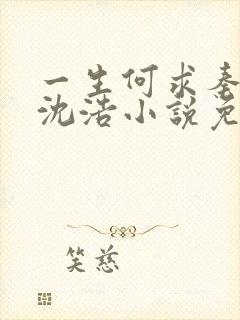 一生何求秦
沈浩小说免
笑慈